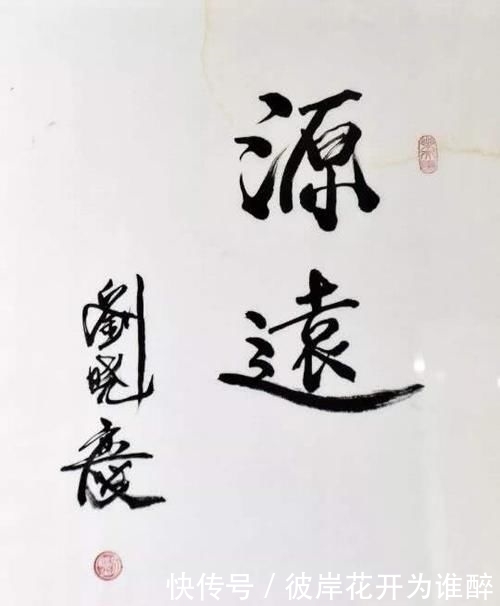 源遠
劉晓慶
快传号 / 彼岸花开为谁醉